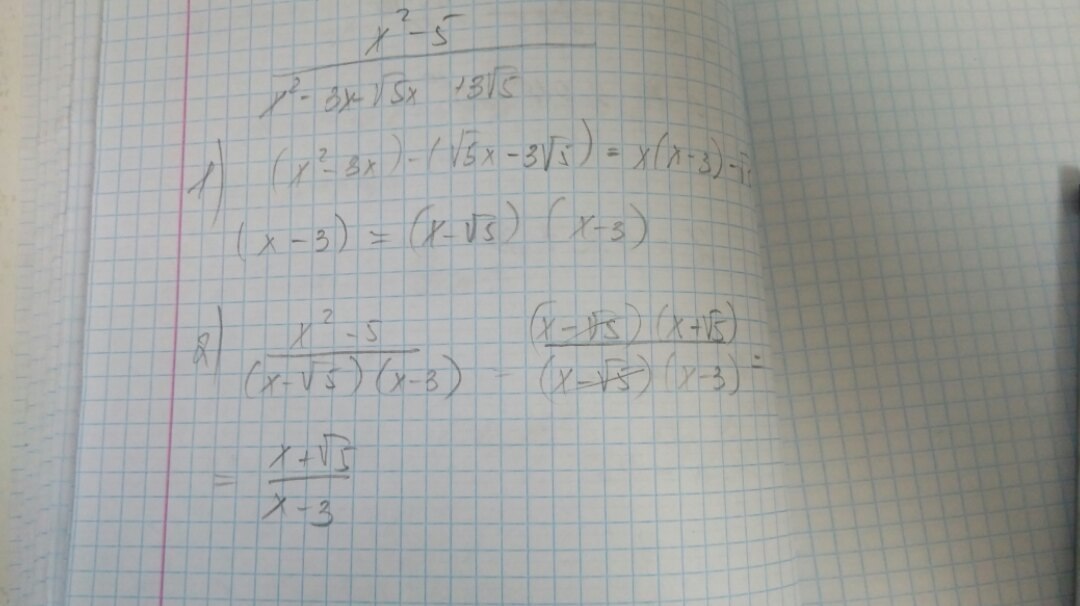 x² - 5
x² - 3x - √5x + 3√5
1) (x² - 3x) - (√5x - 3√5) = x(x - 3) - √5
(x - 3) = (x - √5) (x - 3)
2) x² - 5 / (x - √5) (x - 3) = (x - √5) (x + √5) / (x - √5) (x - 3) =
= x + √5 / x - 3